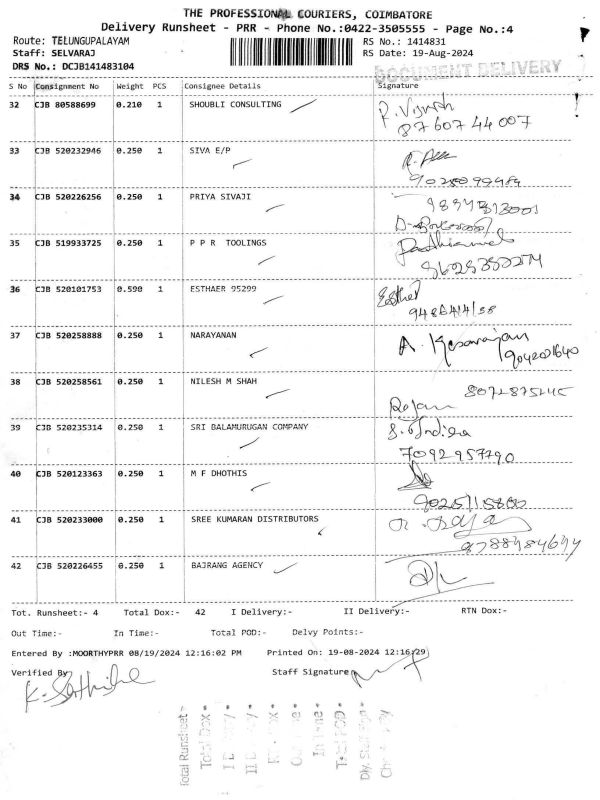 THE PROFESSIONAL COURIERS, COIMBATORE
Delivery Runsheet - PRR - Phone No.:0422-3505555 - Page No.:4
Route: TELUNGUPALAYAM RS No.: 1414831
Staff: SELVARAJ RS Date: 19-Aug-2024
DRS No.: DCJB141483104
DOCUMENT DELIVERY
S No Consignment No Weight PCS Consignee Details Signature
32 CJB 80588699 0.210 1 SHOUBLI CONSULTING
8760744007
33 CJB 520232946 0.250 1 SIVA E/P
34 CJB 520226256 0.250 1 PRIYA SIVAJI
35 CJB 519933725 0.250 1 P P R TOOLINGS
36 CJB 520101753 0.590 1 ESTHAER 95299 Esther
37 CJB 520258888 0.250 1 NARAYANAN A. Kesavarajan
38 CJB 520258561 0.250 1 NILESH M SHAH
39 CJB 520235314 0.250 1 SRI BALAMURUGAN COMPANY S. Indira
7092957790
40 CJB 520123363 0.250 1 M F DHOTHIS
41 CJB 520233000 0.250 1 SREE KUMARAN DISTRIBUTORS
42 CJB 520226455 0.250 1 BAJRANG AGENCY
Tot. Runsheet:- 4 Total Dox:- 42 I Delivery:- II Delivery:- RTN Dox:-
Out Time:- In Time:- Total POD:- Delvy Points:-
Entered By :MOORTHYPRR 08/19/2024 12:16:02 PM Printed On: 19-08-2024 12:16:29
Verified By Staff Signature
Total Runsheet -
Total Dox -
In Time -
Total POD -